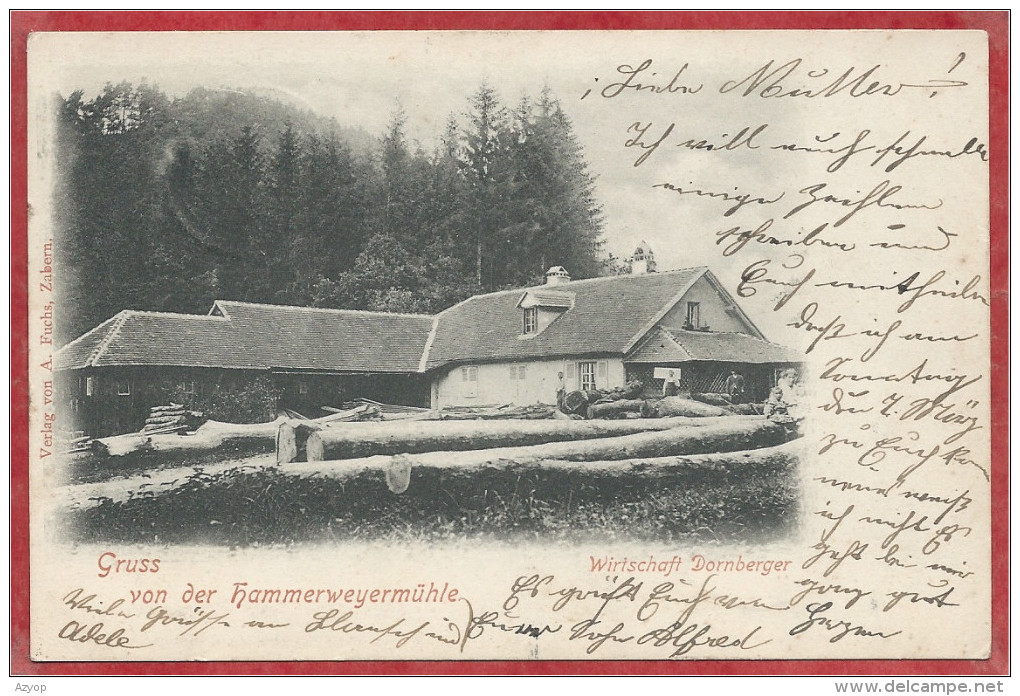 Liebe Mutter!
Ich will euch schnell
einige Zeihlen
schreiben und
Euch mitheilen
dass ich am
Sonntag
den 7. März
zu Euch kom
ich nicht Es
geht bei mir
ganz gut
Es grüßt Euch von Herzen
Euer Sohn Alfred
Viele Grüsse an
Adele
Verlag von A. Fuchs, Zabern.
Gruss
von der Hammerweyermühle
Wirtschaft Dornberger
Azyop
www.delcampe.net